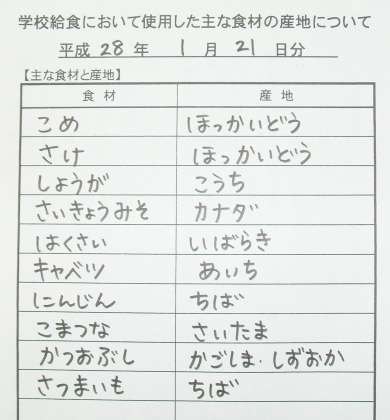 学校給食において使用した主な食材の産地について
平成 28 年 1 月 21 日分
【主な食材と産地】
食材 産地
こめ ほっかいどう
さけ ほっかいどう
しょうが こうち
さいきょうみそ カナダ
はくさい いばらき
キャベツ あいち
にんじん ちば
こまつな さいたま
かつおぶし かごしま・しずおか
さつまいも ちば